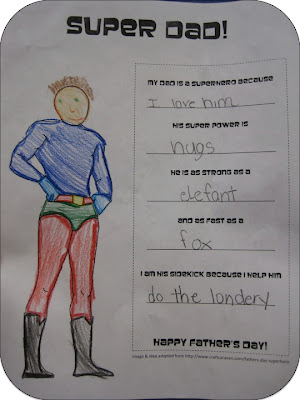 SUPER DAD!
MY DAD IS A SUPERHERO BECAUSE
I love him
HIS SUPER POWER IS
hugs
HE IS AS STRONG AS A
elefant
AND AS FAST AS A
fox
I AM HIS SIDEKICK BECAUSE I HELP HIM
do the londery
HAPPY FATHER'S DAY!